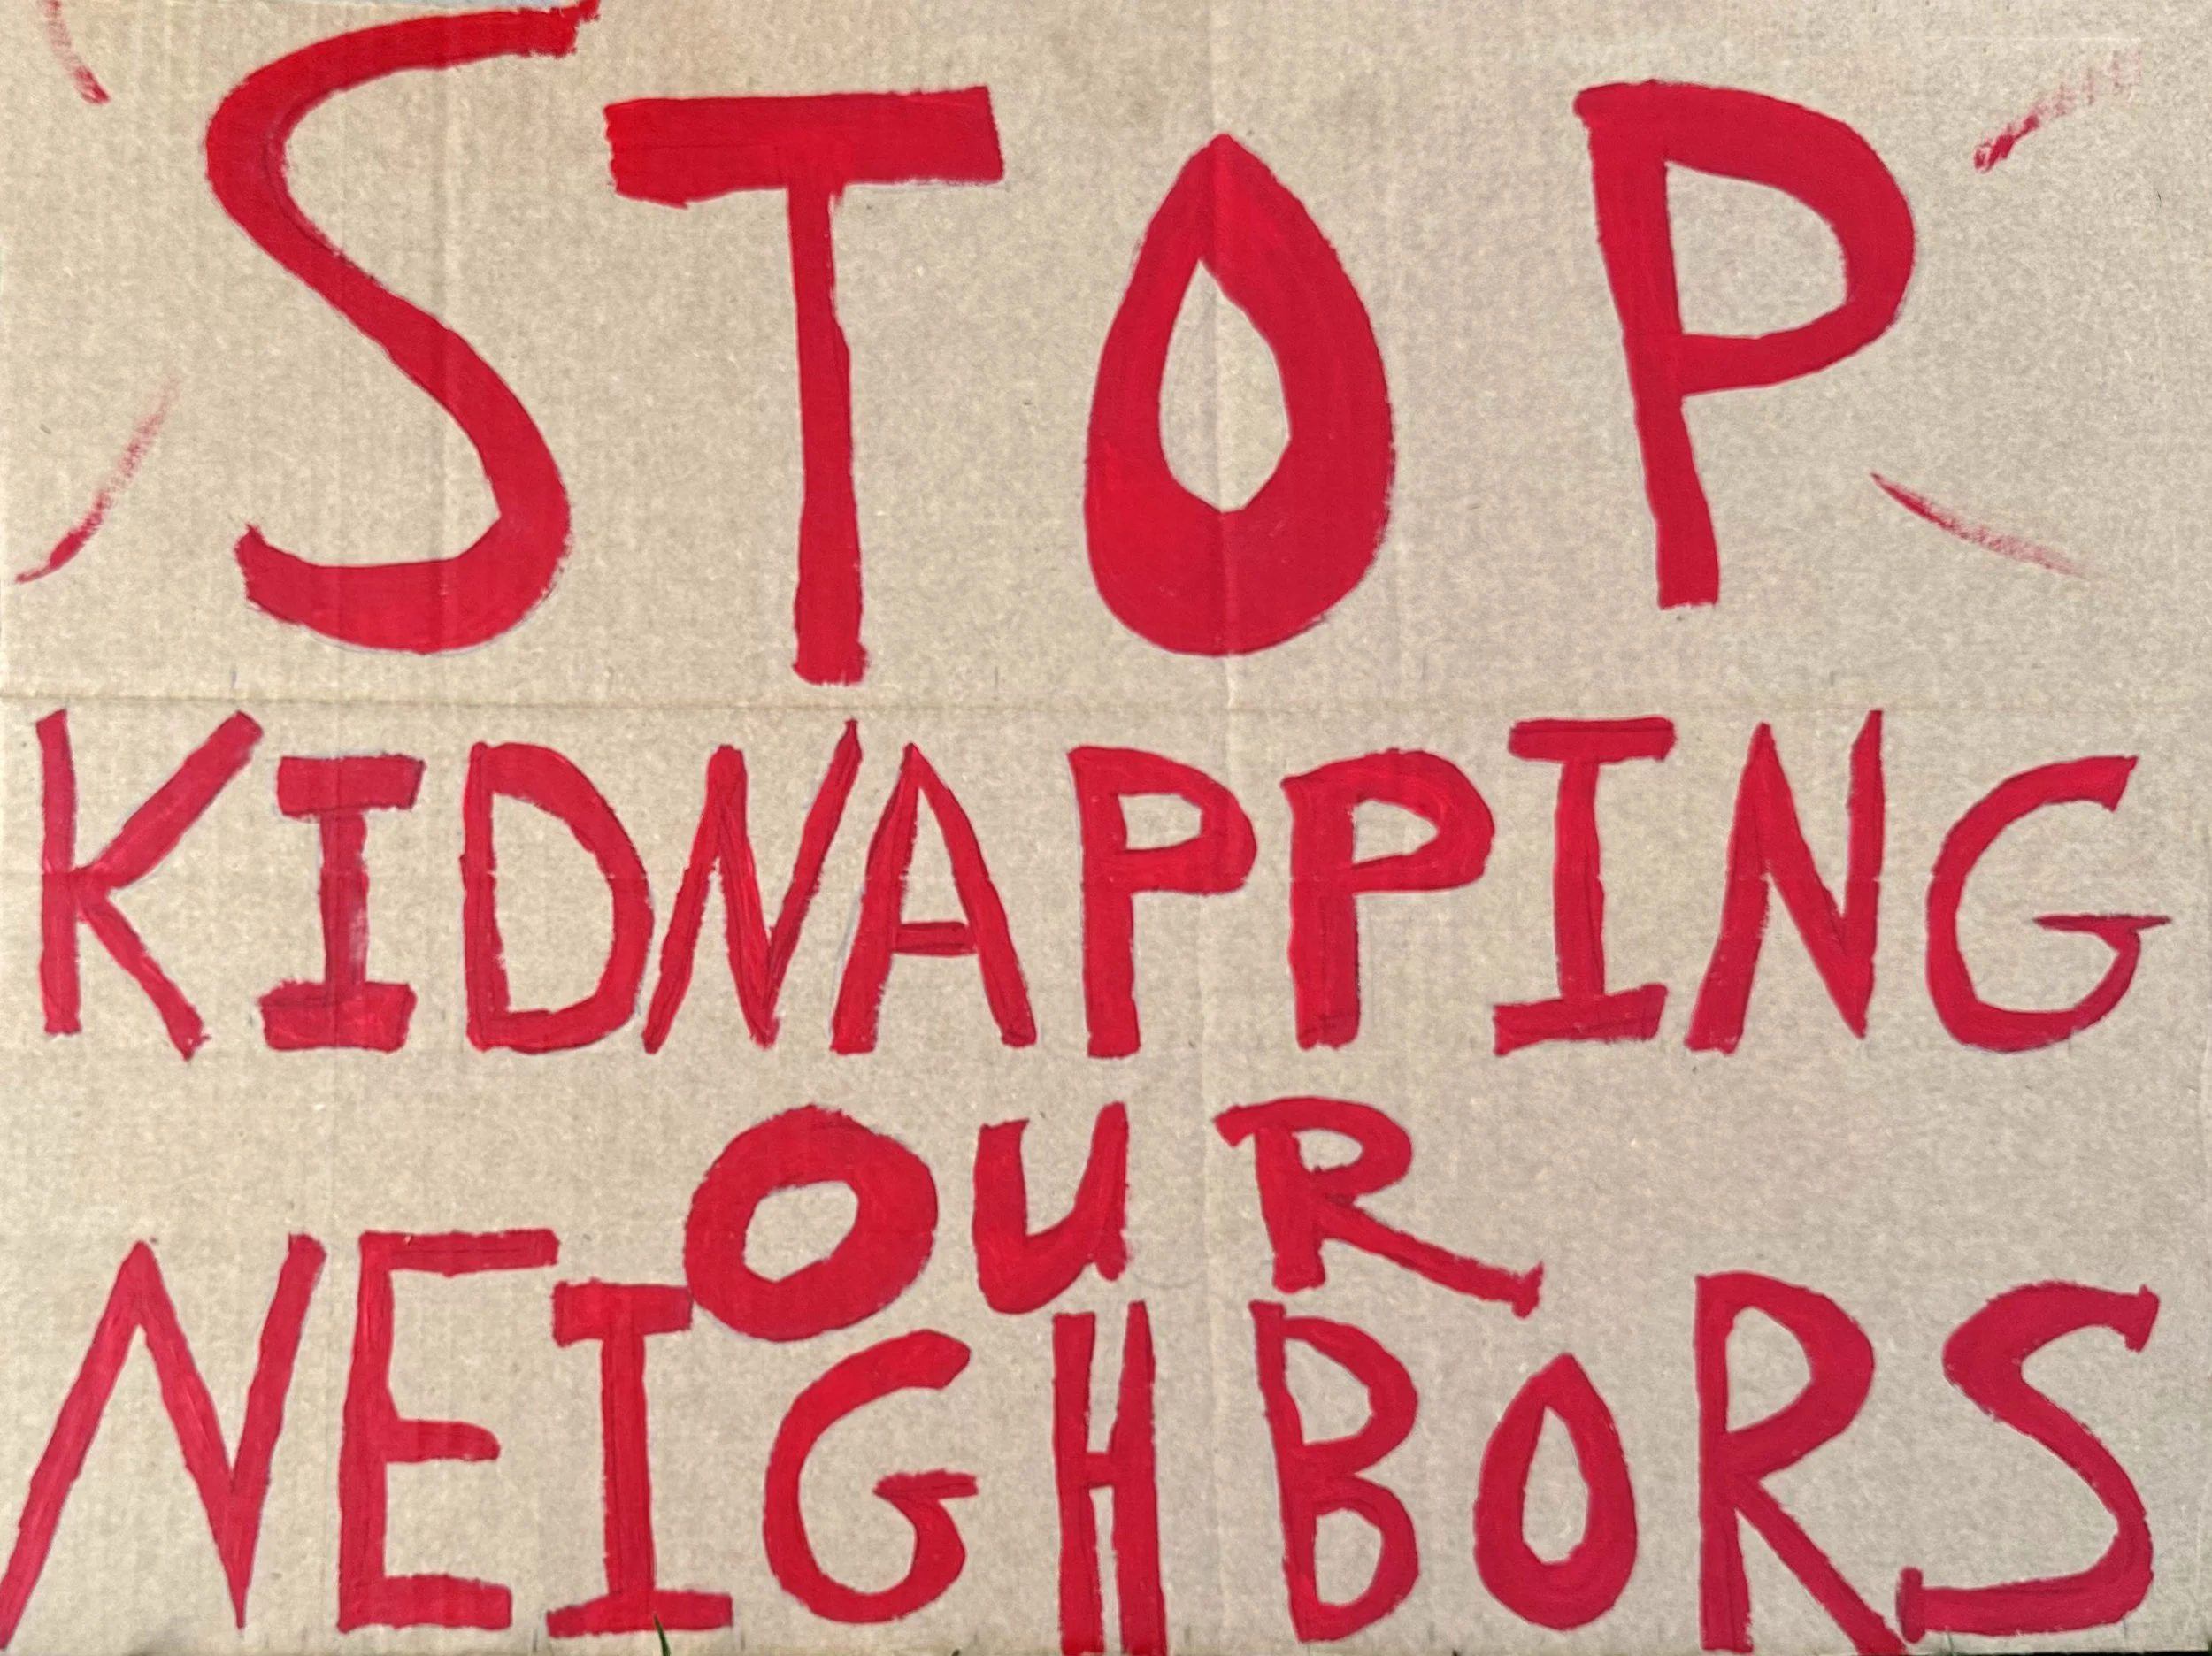 STOP
KIDNAPPING
OUR
NEIGHBORS